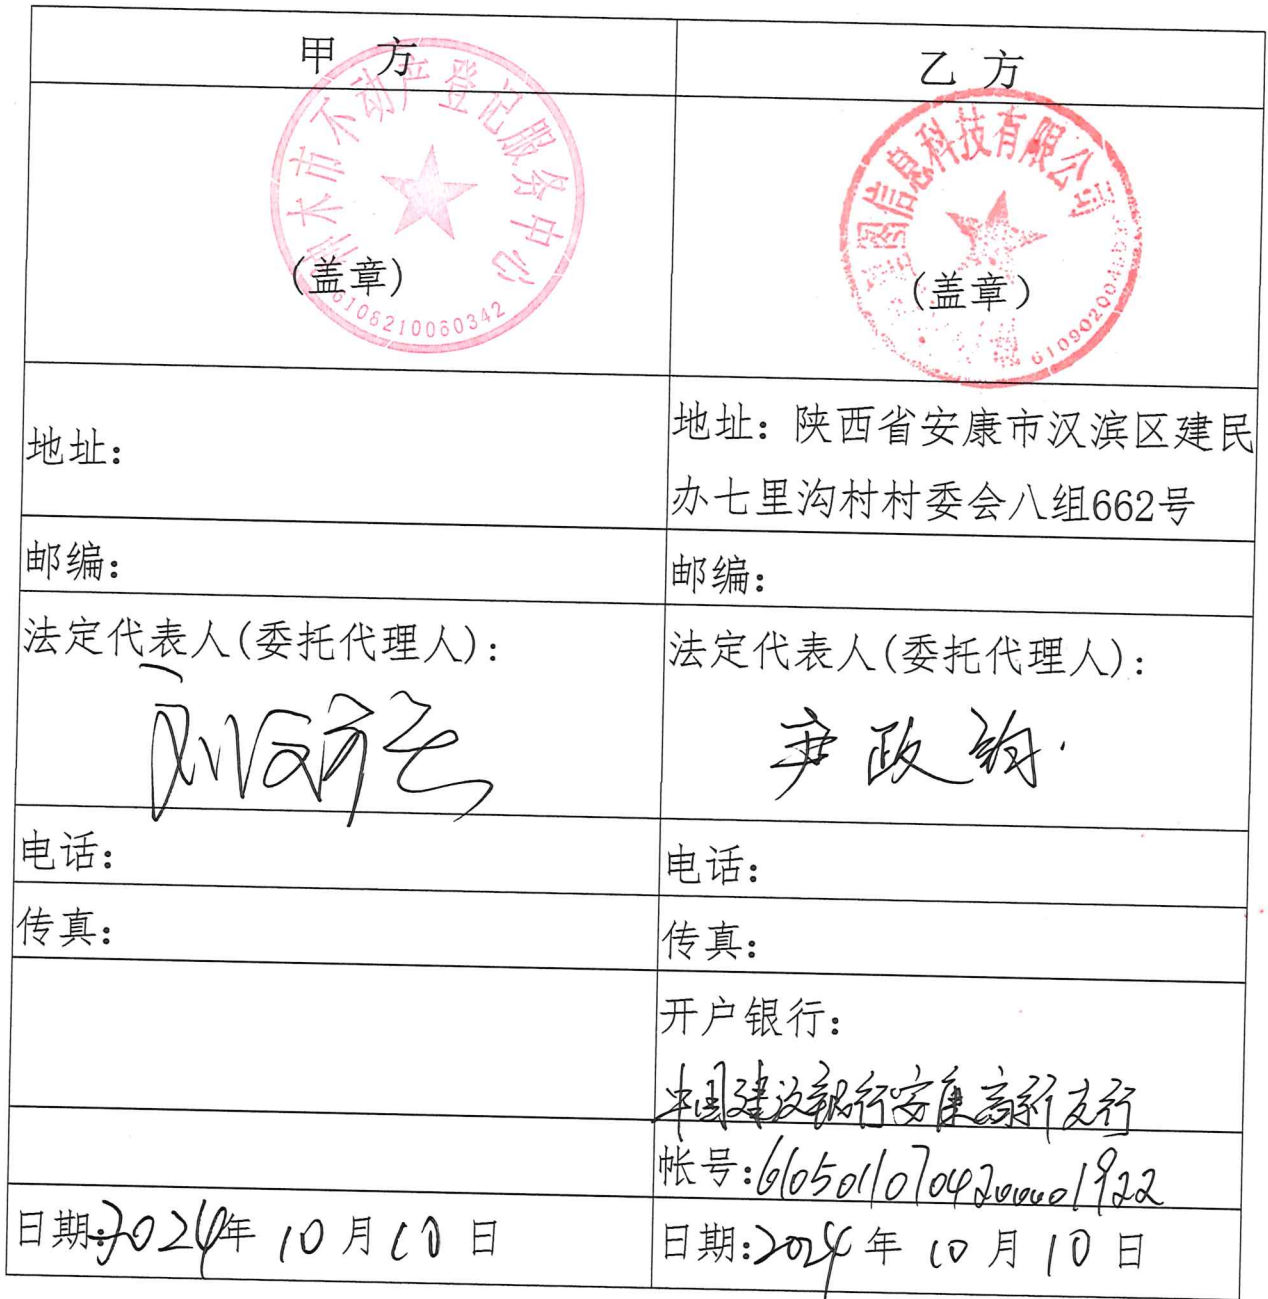 甲 方
乙 方
木市不动产登记服务中心
(盖章)
6108210060342
图信息科技有限公司
(盖章)
地址：
地址：陕西省安康市汉滨区建民
办七里沟村村委会八组662号
邮编：
邮编：
法定代表人(委托代理人)：
法定代表人(委托代理人)：
尹政
电话：
电话：
传真：
传真：
开户银行：
中国建设银行安康高新支行
帐号:61050110704200001922
日期:2024年 10 月 10 日
日期:2024年 10 月 10 日